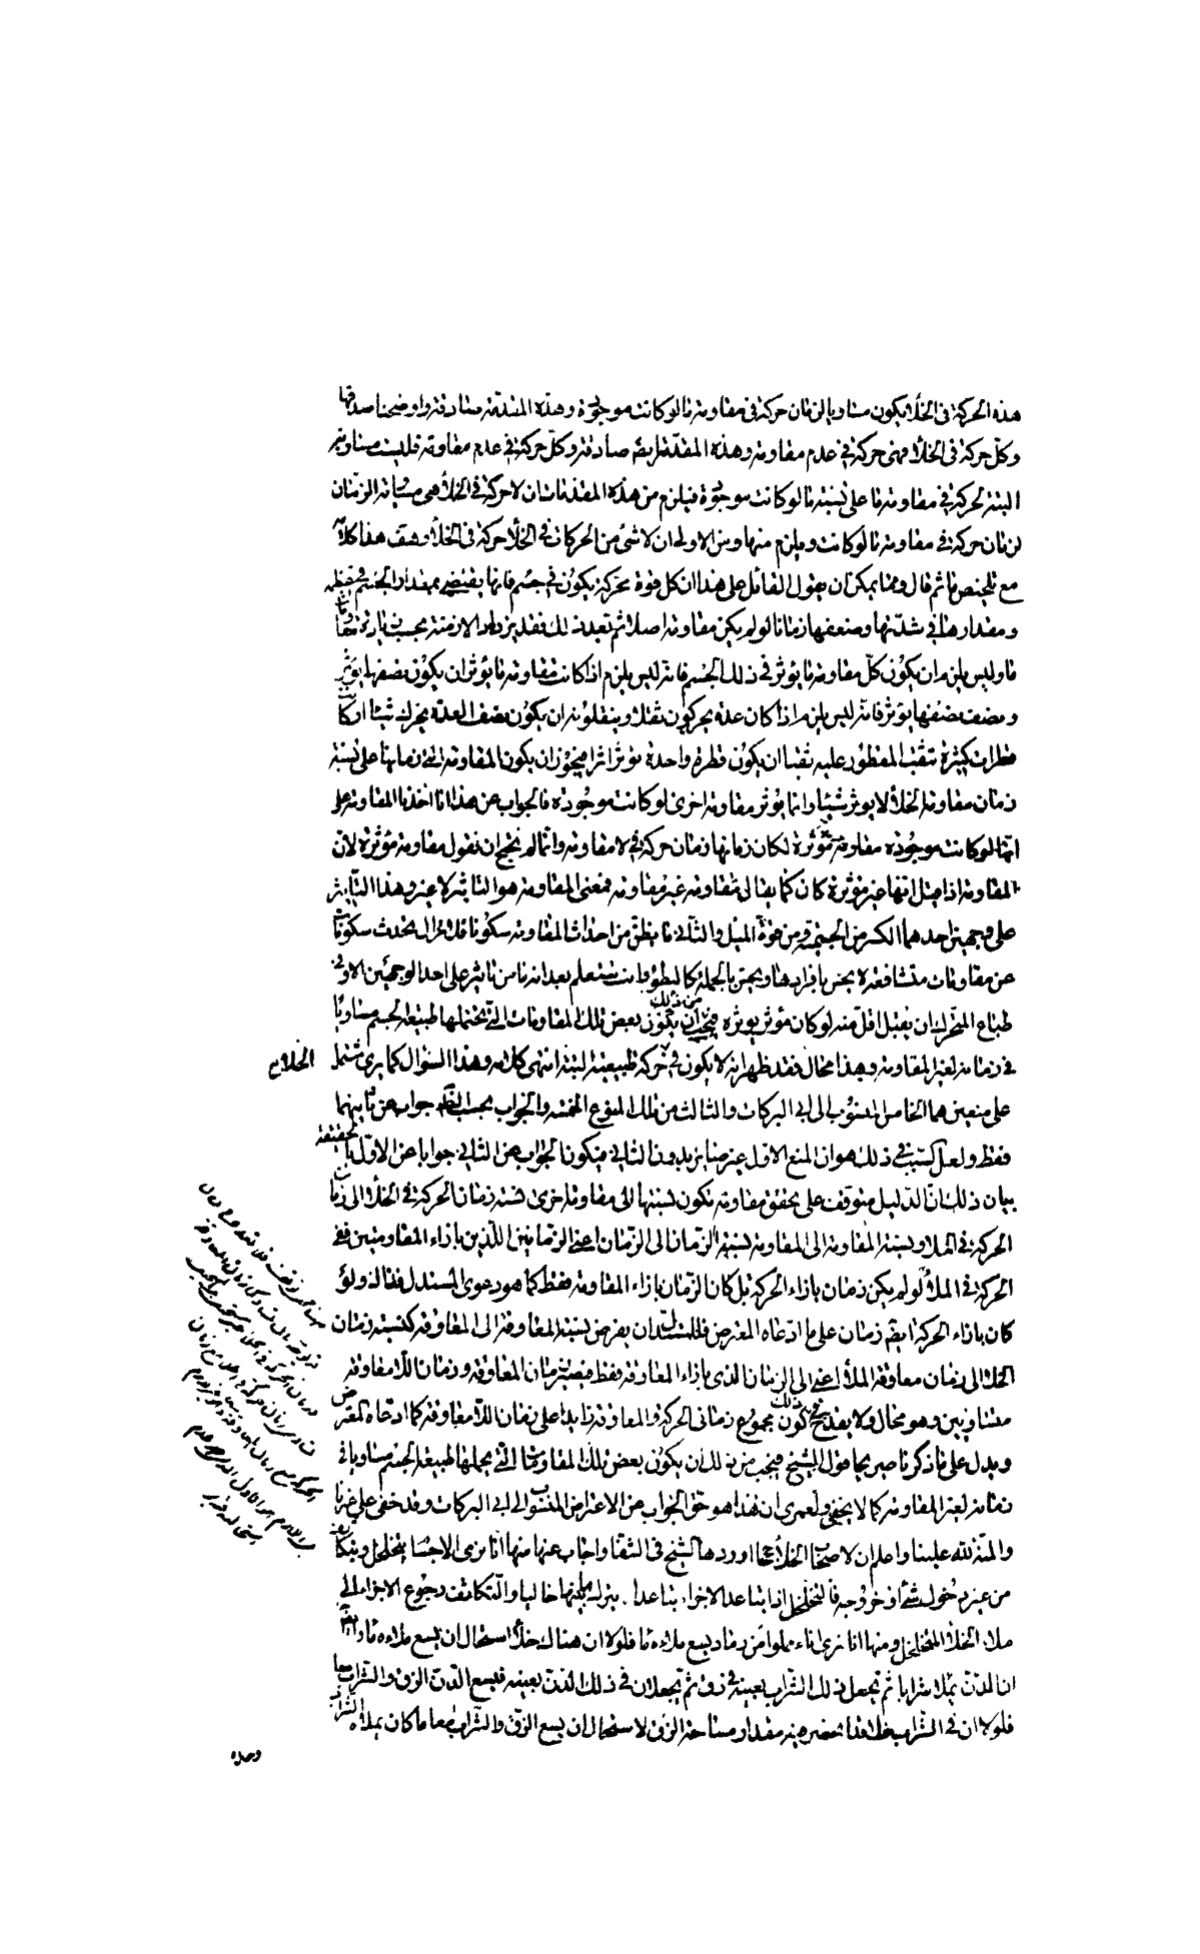 هذه الحركة فى الخلأ يكون مساويا لزمان حركة فى مقاومة ما لو كانت موجودة وهذه المقدّمة صادقة واوضحنا صدقها
وكل حركة فى الخلأ فهى حركة فى عدم مقاومة وهذه المقدّمة ايضا صادقة وكل حركة فى عدم مقاومة فليست مساوية
البتة لحركة فى مقاومة ما على نسبة ما لو كانت موجودة فيلزم من هذه المقدمات ان لا حركة فى الخلأ هى مساوية الزمان
لزمان حركة فى مقاومة ما لو كانت ويلزم منها ومن الاولى ان لا شئ من الحركات فى الخلأ حركة فى الخلأ وهف هذا كلامه
مع تلخيص ما ثم قال ومما يمكن ان يقول القائل على هذا ان كل قوة محركة يكون فى جسم فانها يقتضى بمقدار الجسم فى عظمه
ومقدارها فى شدّتها وضعفها زمانا لو لم يكن مقاومة اصلا ثم بعد ذلك فقد يزداد الازمنة بحسب زيادة مقاومات
ما وليس يلزم ان يكون كلّ مقاومة ما يوثر فى ذلك الجسم فانه ليس يلزم اذا كانت مقاومة ما يوثر ان يكون نصفها يوثر
ونصف نصفها يوثر فانه ليس يلزم اذا كان عدة يحركون ثقلا وينقلونه ان يكون نصف العدة يحرك شيئا او كانت
قطرات كثيرة تثقب المقطور عليه ثقبا ان يكون قطرة واحدة توثر اثرا فيجوز ان يكون المقاومة التى زمانها على نسبة
زمان مقاومة الخلأ لا يوثر شيئا وانما يوثر مقاومة اخرى لو كانت موجودة فالجواب عن هذا انا اخذنا المقاومة على
انها لو كانت موجودة مقاومة موثرة لكان زمانها زمان حركة فى لا مقاومة وانما لم نحتج ان نقول مقاومة موثرة لان
المقاومة اذا قيل انها غير موثرة كان كما يقال مقاومة غير مقاومة فمعنى المقاومة هو التاثير لا غير وهذا التاثير
على وجهين احدهما الكسر من الحمية ومن قوة الميل والثانى ما يظنّ من احداث المقاومة سكونا فلا تزال يحدث سكونات
عن مقاومات متشافعة لا يحس بافرادها ويحس بالجملة كالبطؤ وانت ستعلم بعد انه ما من تاثير على احد الوجهين الا وفى
طباع المتحرك ان يقبل اقل منه لو كان موثر يوثره فيجب من ذلك ان يكون بعض تلك المقاومات التى يحتملها طبيعة الجسم مساويا
فى زمانه لغير المقاومة وهذا محال فقد ظهر انه لا يكون فى حركة طبيعية البتة انتهى كلامه وهذا السؤال كما يرى مشتمل
الخلاء
على منعين هما الخامس المنسوب الى ابى البركات والثالث من تلك المنوع الخمسة والجواب بحسب الظاهر جواب عن ثانيهما
فقط ولعل السبب فى ذلك هو ان المنع الاول غير ضار بدون الثانى فيكون الجواب عن الثانى جوابا عن الاوّل بالحقيقة
بيان ذلك انّ الدليل متوقف على تحقق مقاومة تكون نسبتها الى مقاومة اخرى نسبة زمان الحركة فى الخلأ الى زمان
الحركة فى الملأ ونسبة المقاومة الى المقاومة نسبة الزمان الى الزمان اعنى الزمانين اللذين بازاء المقاومتين ففى
الحركة فى الملأ لو لم يكن زمان بازاء الحركة بل كان الزمان بازاء المقاومة فقط كما هو دعوى المستدل فذاك ولو
كان بازاء الحركة ايضا زمان على ما ادعاه المعترض فللمستدل ان يفرض نسبة المقاومة الى المقاومة كنسبة زمان
الخلأ الى زمان معاوقة الملأ اعنى الى الزمان الذى بازاء المعاوقة فقط فيصير زمان المعاوقة وزمان اللامعاوقة
متساويين وهو محال ولا يقدح فى ذلك كون مجموع زمانى الحركة والمعاوقة زايدا على زمان اللامعاوقة كما ادعاه المعترض
ويدل على ما ذكرنا صريحا قول الشيخ فيجب من ذلك ان يكون بعض تلك المقاومات التى يحتملها طبيعة الجسم مساويا فى
زمانه لغير المقاومة كما لا يخفى ولعمرى ان هذا هو حق الجواب عن الاعتراض المنسوب الى ابى البركات وقد خفى على غيرنا
والمنة لله علينا واعلم ان لاصحاب الخلأ حججا اوردها الشيخ فى الشفا واجاب عنها منها انا نرى الاجسام يتخلخل ويتكاثف
من غير دخول شئ او خروجه فالتخلخل اذا تباعد الاجزاء تباعدا يترك بينها خاليا والتكاثف رجوع الاجزاء الى
ملاء الخلأ المتخلخل ومنها انا نرى اناء مملوا من رماد يسع ملاءه ما فلولا ان هناك خلأ استحال ان يسع ملاءه ما ومنها
ان الدن يملأ شرابا ثم يجعل ذلك الشراب بعينه فى زق ثم يجعلان فى ذلك الدن بعينه فيسع الدن الزق والشراب معا
فلولا ان فى الشراب خلأ قد انحصر فيه مقدار مساحة الزق لاستحال ان يسع الزق والشراب معا ما كان يملأه الشراب
وحده